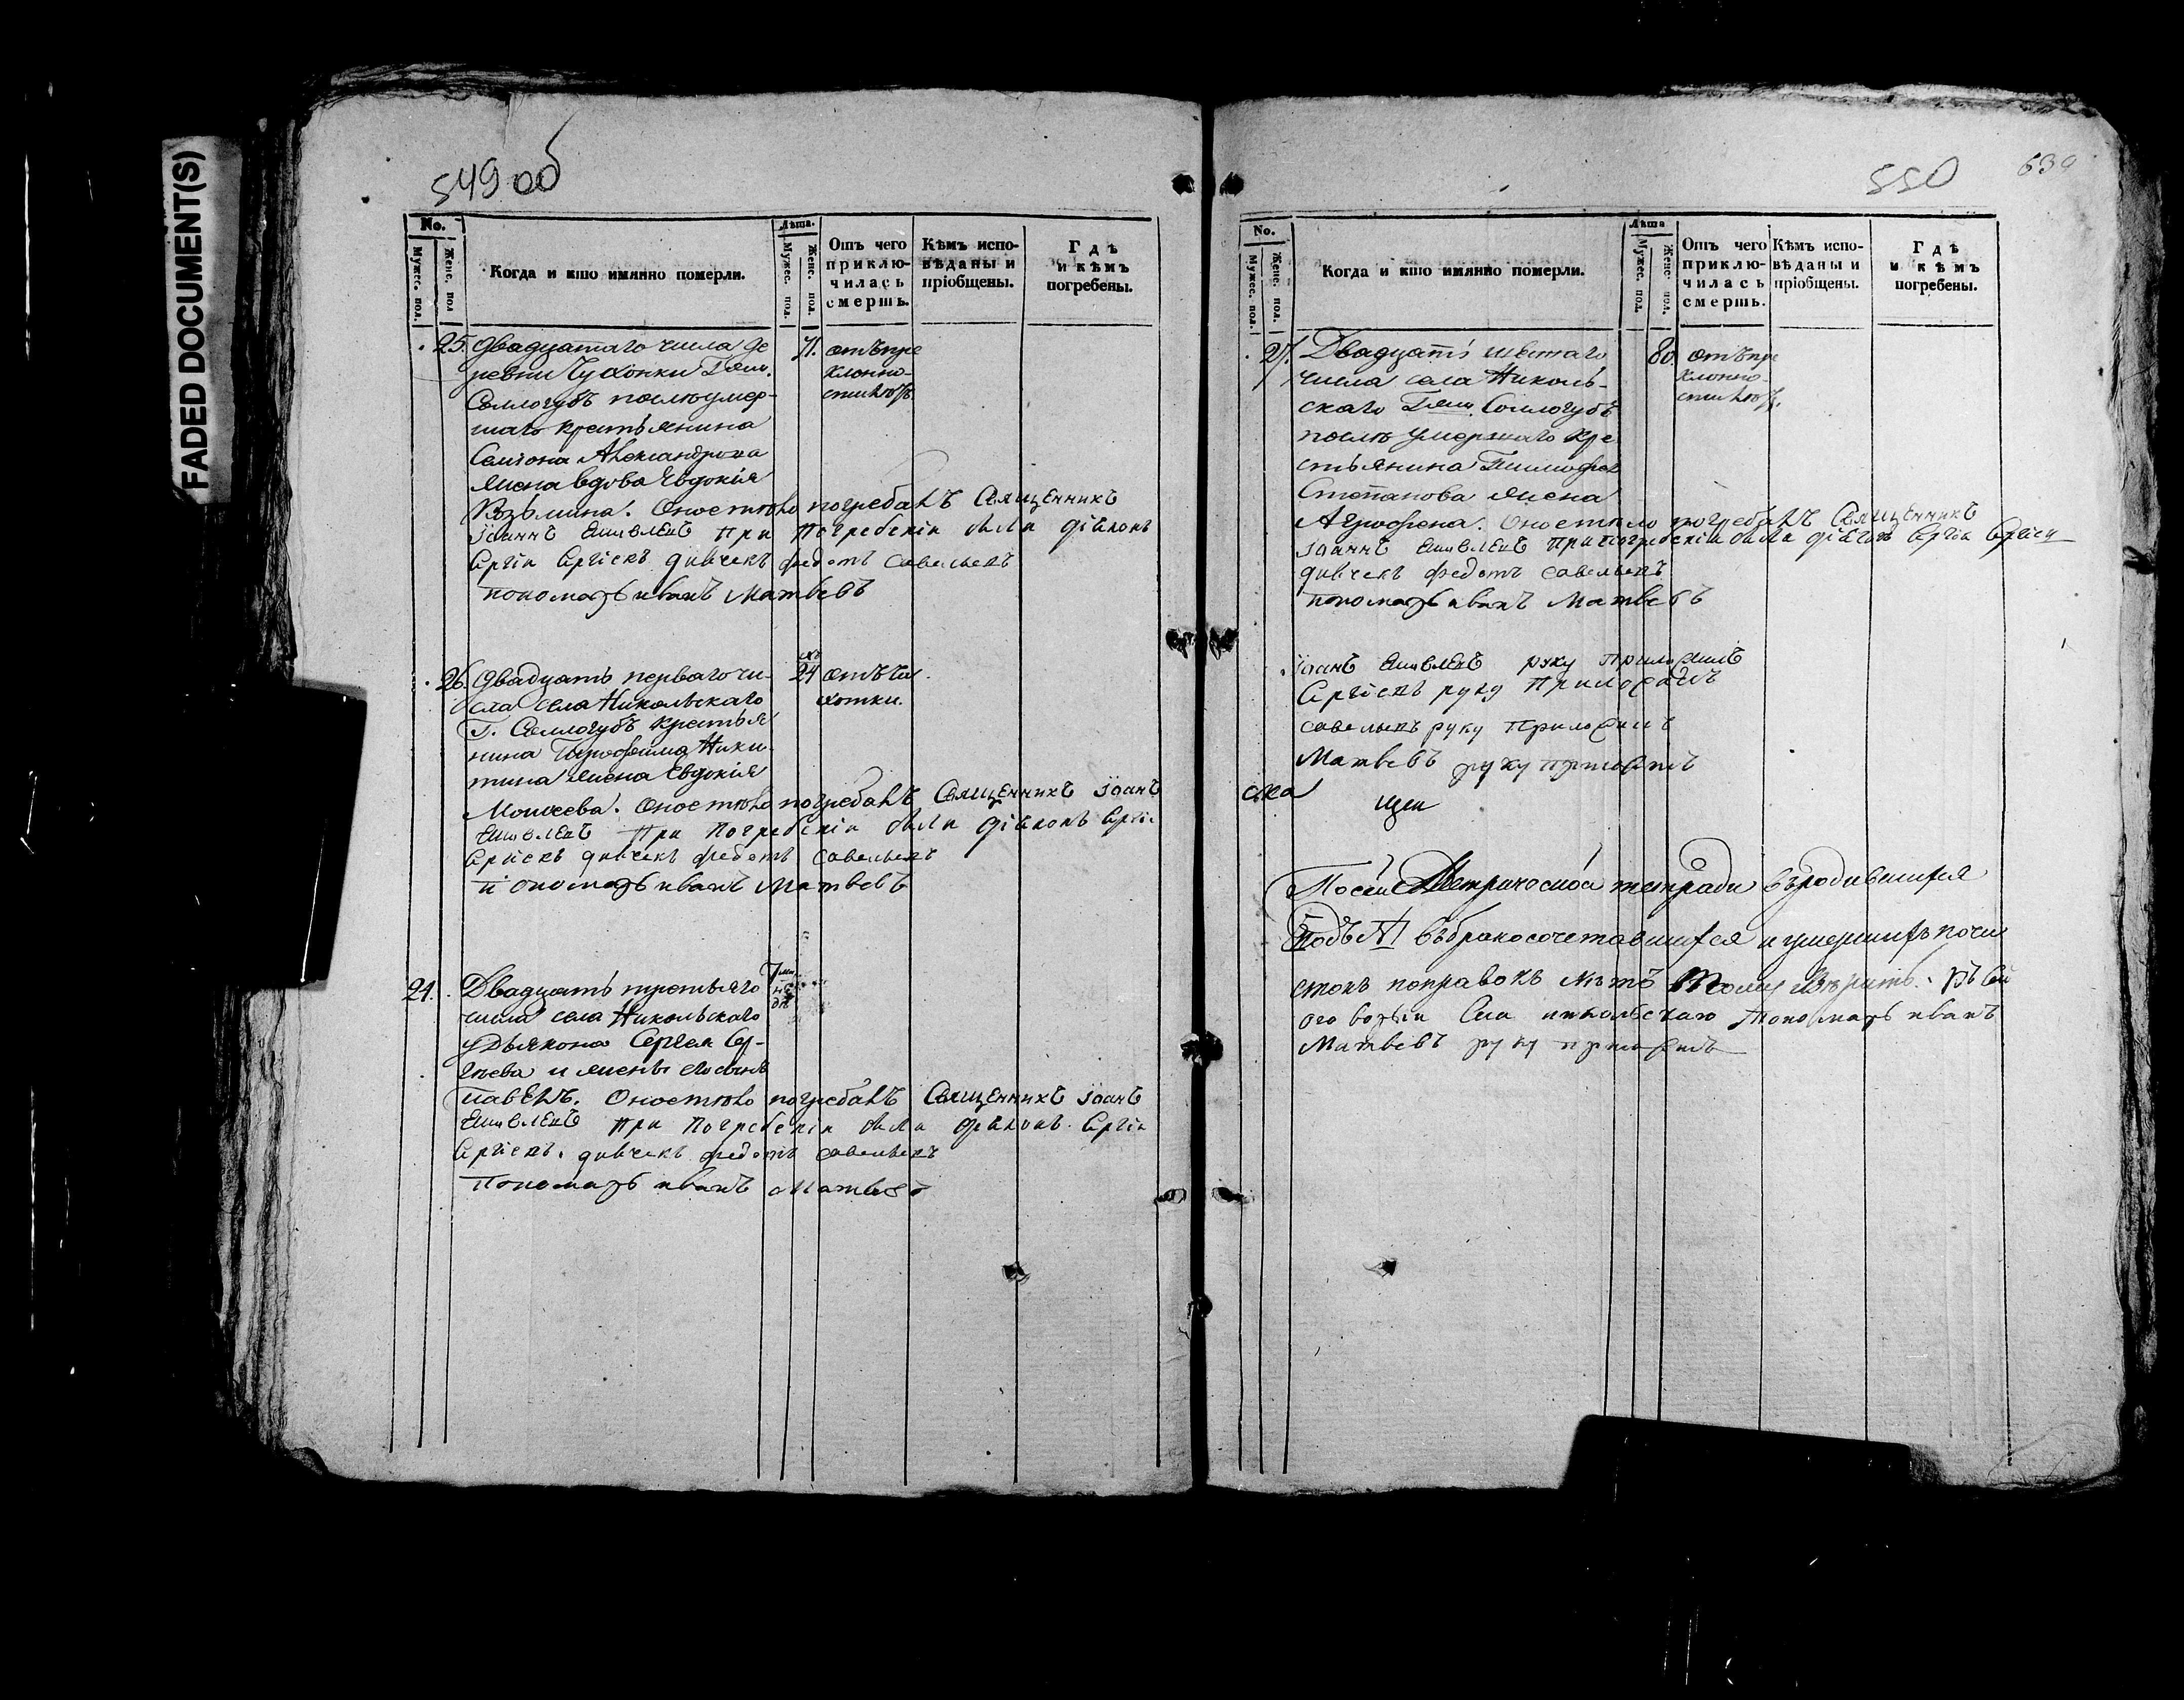 FADED DOCUMENT(S)
549 об
No.
Мужес. пол.
Женс. пол
Когда и кто имянно померли.
Лѣта.
Мужес. пол.
Женс. пол.
Отъ чего приклю-
чилась смерть.
Кѣмъ испо-
вѣданы и
пріобщены.
Гдѣ
и кѣмъ
погребены.
25. Двадцатаго числа де
ревни Чухонки Гжи.
Соллогубъ послѣ умер-
шаго крестьянина
Семіона Александрова
жена вдова Евдокія
Козьмина. Оное тѣло погребалъ Священникъ
Іоаннъ при погребеніи были діаконъ
Сергіи Сергіевъ дьячекъ федотъ савельевъ
пономарь иванъ Матвѣвъ
71.
отъ пре
клонно-
сти лѣтъ
26. Двадцать перваго чи-
сла села Никольскаго
Г. Соллогубъ крестья
нина Ники-
тина жена Евдокія
Моисеева. Оное тѣло погребалъ Священникъ Іоанъ
при погребеніи были діаконъ Сергіи
Сергіевъ дьячекъ федотъ савельевъ
пономарь иванъ Матвѣвъ
24
отъ ча-
хотки.
21. Двадцать третьяго
числа села Никольскаго
у Дьякона Сергея Сер-
гѣева и жены его сынъ
Павелъ. Оное тѣло погребалъ Священникъ Іоанъ
при погребеніи были діаконъ Сергіи
Сергіевъ. дьячекъ федотъ савельевъ
Пономарь иванъ Матвѣвъ
7
550
No.
Мужес. пол.
Женс. пол.
Когда и кто имянно померли.
Лѣта
Мужес. пол.
Женс. пол.
Отъ чего
приклю-
чилась
смерть.
Кѣмъ испо-
вѣданы и
пріобщены.
Гдѣ
и кѣмъ
погребены.
27. Двадцать шестаго
числа села Николь-
скаго Гжи. Соллогубъ
послѣ умершаго кре
стьянина Тимофея
Степанова жена
Агрофена. Оное тѣло погребалъ Священникъ
Іоаннъ при погребеніи были діаконъ Сергіи Сергіевъ
дьячекъ федотъ савельевъ
пономарь иванъ Матвѣвъ
80.
отъ пре
клонно-
сти лѣтъ.
Іоанъ руку приложилъ
Сергіевъ руку приложилъ
савельевъ руку приложилъ
Матвѣвъ руку приложилъ
По сей Метрической тетради въ родившихся
въ бракосочетавшихся и умершихъ почи
стокъ поправокъ нѣтъ
Села никольскаго Пономарь иванъ
Матвѣвъ руку приложилъ